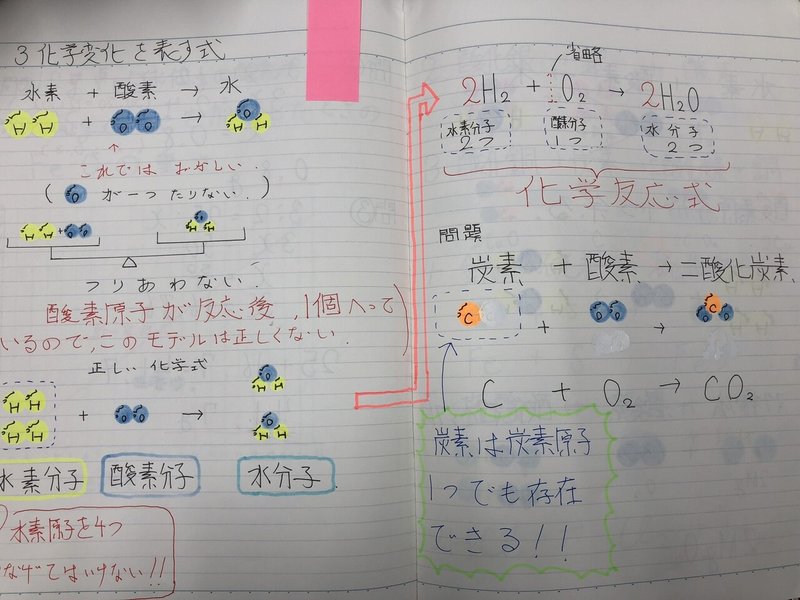 3 化学変化を表す式
水素 + 酸素 → 水
H H + O O → O H H
これではおかしい.
( O が一つたりない.)
H H + O O O H H
つりあわない.
酸素原子が反応後,1個へって
いるので,このモデルは正しくない.
正しい化学式
H H H H + O O → O H H O H H
水素分子 酸素分子 水分子
水素原子を4つ
なげてはいけない!!
省略
2H₂ + 1O₂ → 2H₂O
水素分子 2つ 酸素分子 1つ 水分子 2つ
化学反応式
問題
炭素 + 酸素 → 二酸化炭素.
C + O O → O C O
C + O₂ → CO₂
炭素は炭素原子
1つでも存在
できる!!